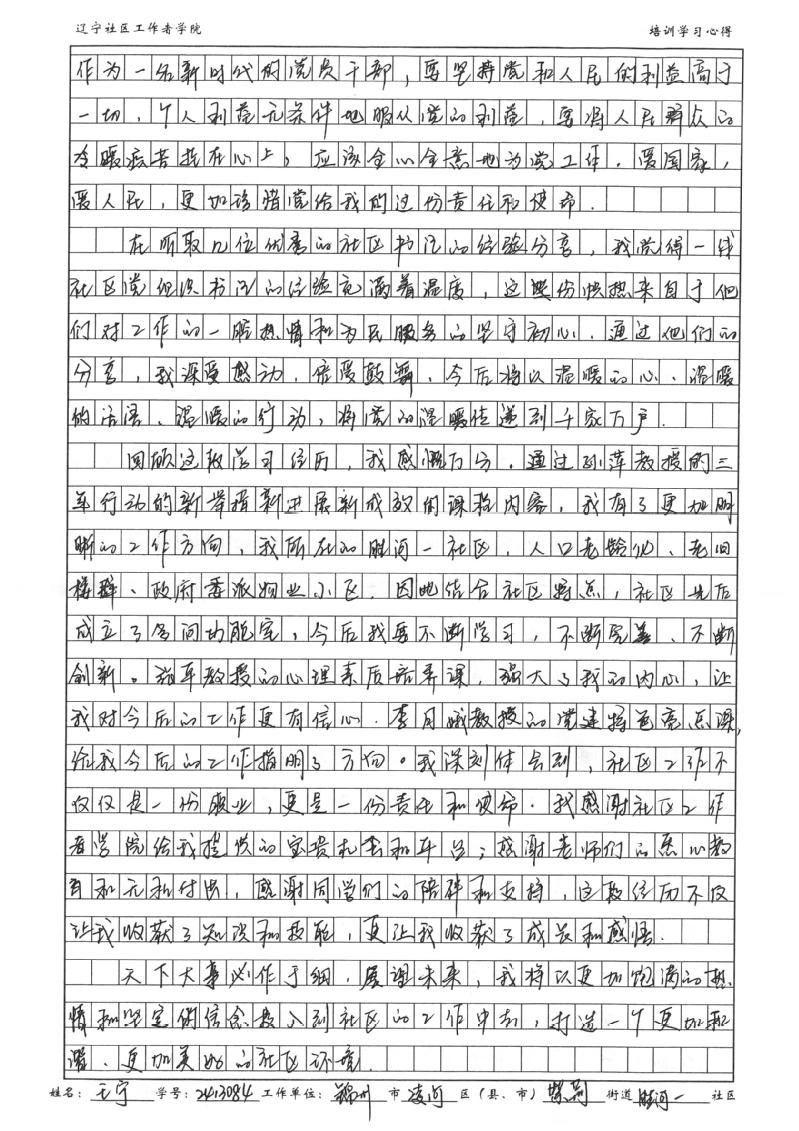 辽宁社区工作者学院 培训学习心得
作为一名新时代的党员干部，要坚持党和人民的利益高于
一切，个人利益无条件地服从党的利益，要将人民群众的
冷暖疾苦挂在心上，应该全心全意地为党工作，爱国家，
爱人民，更加珍惜党给我的这份责任和使命．
在听取几位优秀的社区书记的经验分享，我觉得一线
社区党组织书记的经验充满着温度，这些份炽热来自于他
们对工作的一腔热情和为民服务的坚守初心．通过他们的
分享，我深受感动，倍受鼓舞、今后将以温暖的心、温暖
的话语、温暖的行动，将党的温暖传递到千家万户．
回顾这段学习经历，我感慨万分，通过孙萍教授的三
年行动的新举措新进展新成效的课程内容，我有了更加明
晰的工作方向，我所在的胜河一社区，人口老龄化、老旧
楼群、政府委派物业小区．因此结合社区特点，社区先后
成立了多间功能室，今后我要不断学习，不断完善、不断
创新。教授的心理素质培养课，强大了我的内心，让
我对今后的工作更有信心．李月娥教授的党建特色亮点课，
给我今后的工作指明了方向。我深刻体会到，社区工作不
仅仅是一份职业，更是一份责任和使命．我感谢社区工作
者学院给我提供的宝贵机会和平台；感谢老师们的悉心教
育和无私付出，感谢同学们的陪伴和支持，这段经历不仅
让我收获了知识和技能，更让我收获了成长和感悟．
天下大事必作于细．展望未来，我将以更加饱满的热
情和坚定的信念投入到社区的工作中去，打造一个更加和
谐、更加美好的社区环境．
姓名：王宁 学号：2413084 工作单位：锦州 市 凌河 区（县、市） 紫荆 街道 胜河一 社区